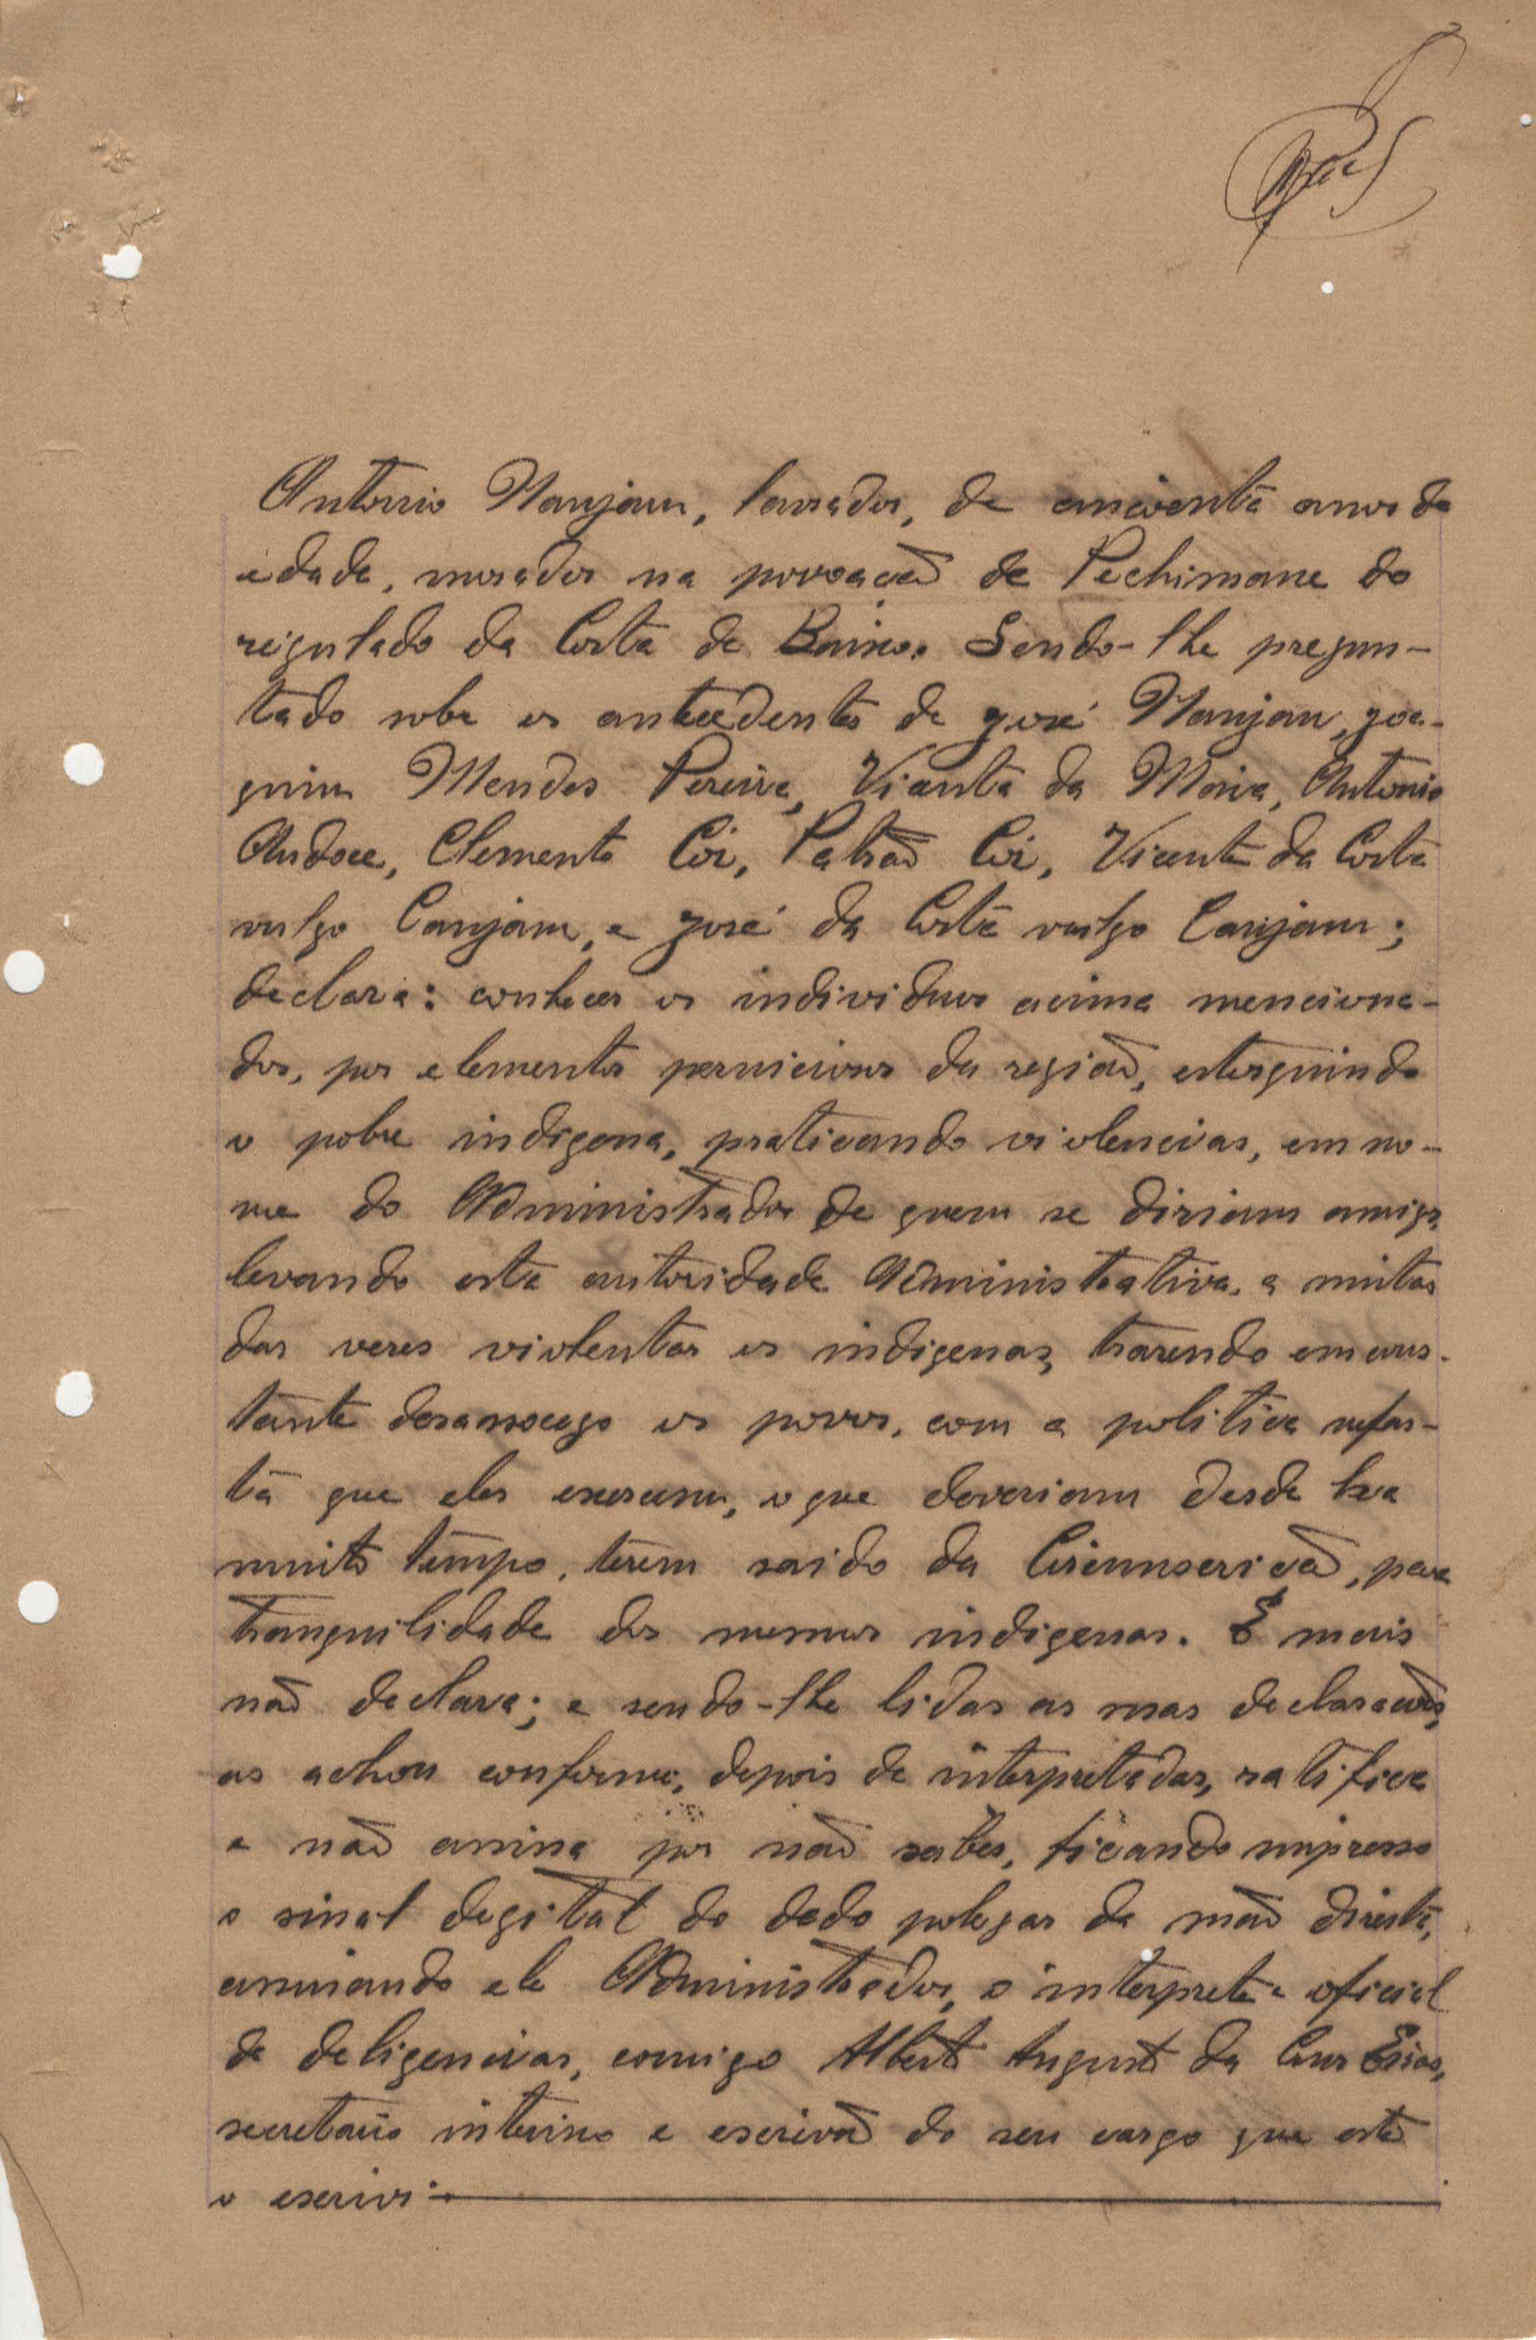 Antonio Nanjam, lavrador, de cincoenta anos de
idade, morador na povoação de Pechimane do
regulado da Costa de Baixo. Sendo-lhe pregun-
tado sobre os antecedentes de José Nanjam, Joa-
quim Mendes Pereira, Vicente da Maia, Antonio
Andoce, Clemente Có, Patrão Có, Vicente da Costa
vulgo Canjam, e José da Costa vulgo Canjam;
declara: conhecer os individuos acima menciona-
dos, por elementos perniciosos da região, estorquindo
o pobre indigena, praticando violencias, em no-
me do Administrador de quem se diziam amigos
levando esta autoridade Administrativa, a muitas
das vezes violentar os indigenas, trazendo em cons-
tante desassocego os povos, com a politica nefas-
ta que eles exercem, o que deveriam desde ha
muito tempo, terem saido da Circunscrição, para
tranquilidade dos mesmos indigenas. E mais
não declara; e sendo-lhe lidas as suas declarações,
as achou conforme, depois de interpretadas, ratifica
e não assina por não saber, ficando impresso
o sinal degital do dedo polegar da mão direita,
assinando ele Administrador, o interprete e oficial
de deligencias, comigo Alberto Augusto da Cruz
secretario interino e escrivão do seu cargo que este
o escrivi